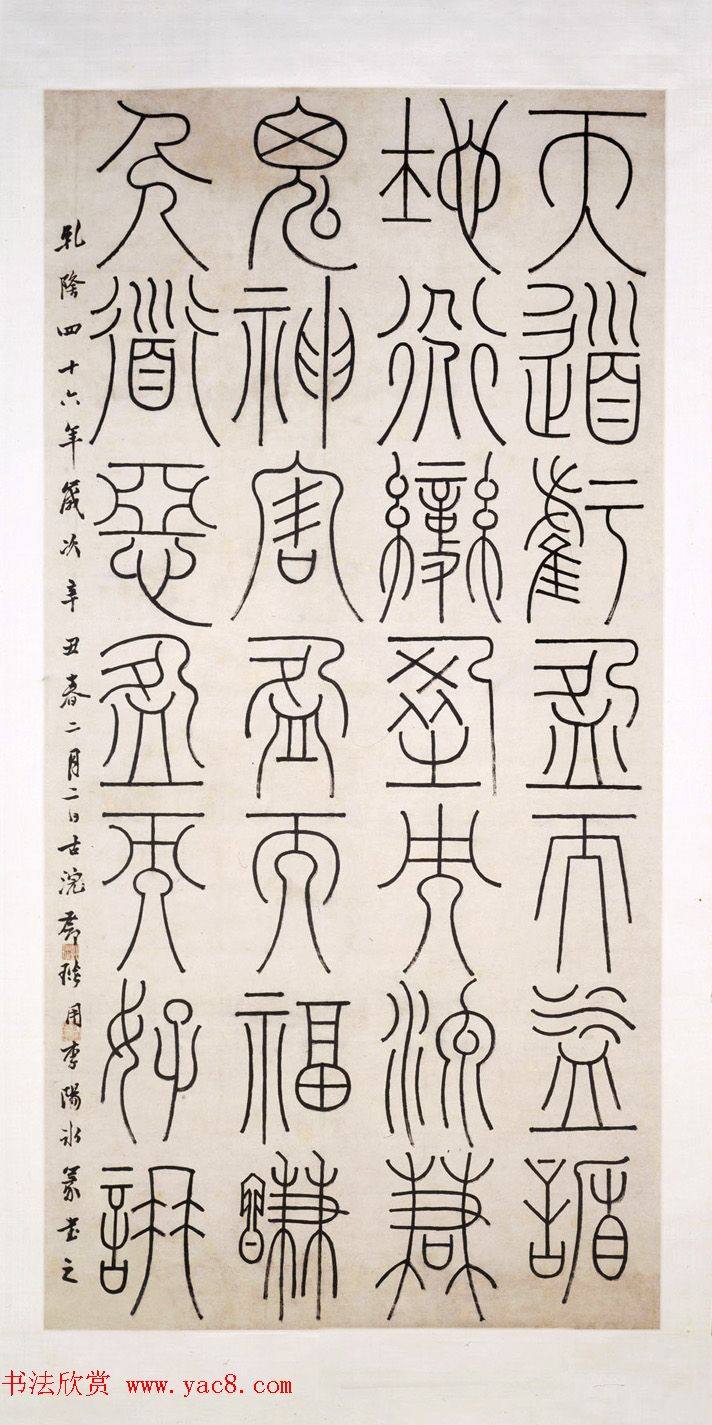 天道虧盈而益謙
地道變盈而流謙
鬼神害盈而福謙
人道惡盈而好謙
乹隆四十六年歲次辛丑春二月二日古浣鄧琰用李陽冰篆書之
书法欣赏 www.yac8.com